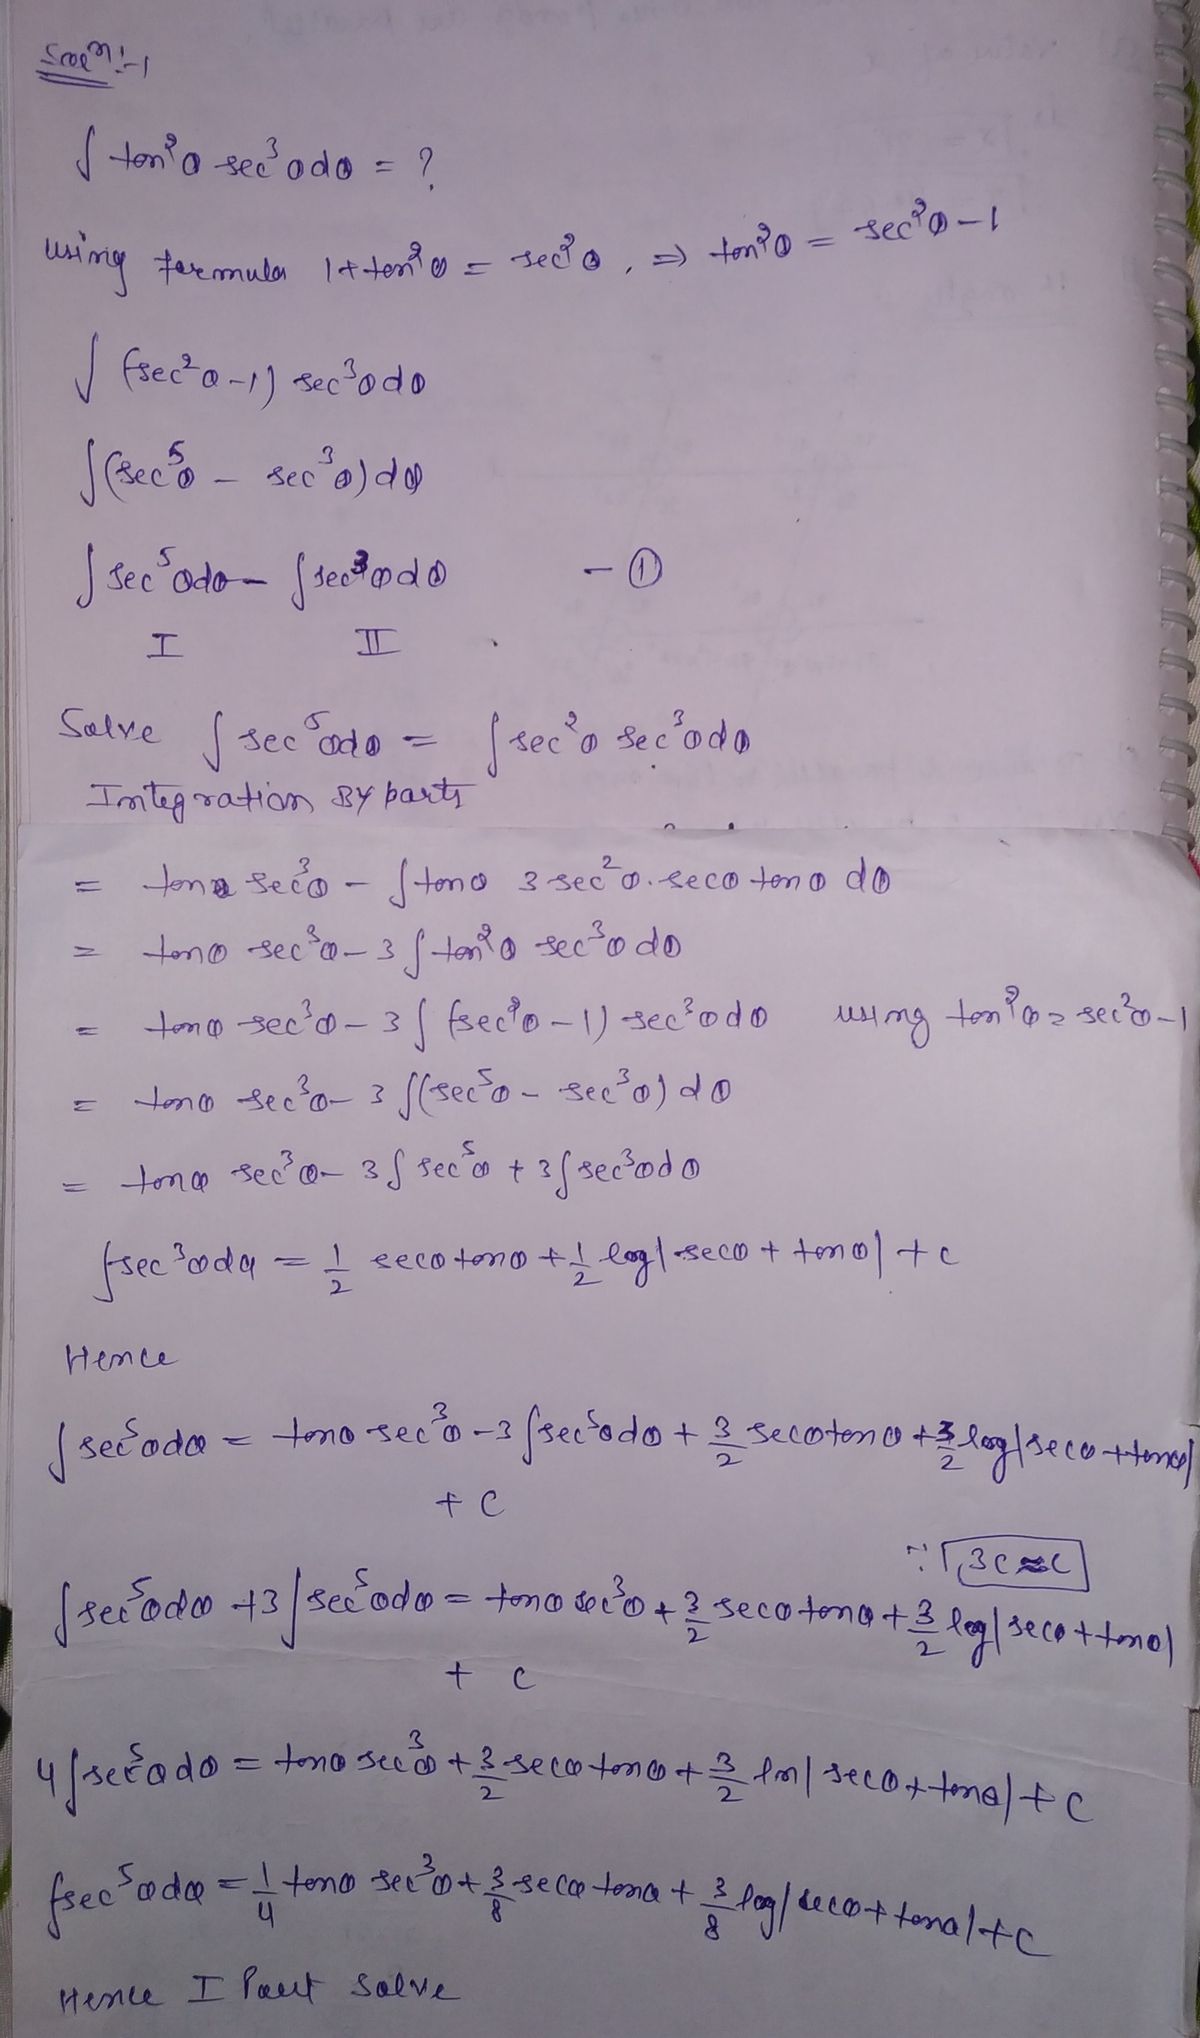 Soln:-1
∫ tan²θ sec³θdθ = ?
using formula 1+tan²θ = sec²θ. ⇒ tan²θ = sec²θ-1
∫ (sec²θ-1) sec³θdθ
∫(sec⁵θ - sec³θ)dθ
∫sec⁵θdθ - ∫sec³θdθ - ①
I II
Solve ∫sec⁵θdθ = ∫sec²θ sec³θdθ
Integration By parts
= tanθ sec³θ - ∫tanθ 3sec²θ.secθ tanθ dθ
= tanθ sec³θ - 3∫tan²θ sec³θdθ
= tanθ sec³θ - 3∫(sec²θ-1) sec³θdθ using tan²θ=sec²θ-1
= tanθ sec³θ - 3∫(sec⁵θ - sec³θ)dθ
= tanθ sec³θ - 3∫sec⁵θ + 3∫sec³θdθ
∫sec³θdθ = 1/2 secθtanθ + 1/2 log|secθ + tanθ| + c
Hence
∫sec⁵θdθ = tanθ sec³θ - 3∫sec⁵θdθ + 3/2 secθtanθ + 3/2 log|secθ+tanθ|
+ C
∵ 3c≈c
∫sec⁵θdθ + 3∫sec⁵θdθ = tanθ sec³θ + 3/2 secθtanθ + 3/2 log|secθ+tanθ|
+ c
4∫sec⁵θdθ = tanθ sec³θ + 3/2 secθ tanθ + 3/2 ln|secθ+tanθ| + C
∫sec⁵θdθ = 1/4 tanθ sec³θ + 3/8 secθ tanθ + 3/8 log|secθ+tanθ| + C
Hence I Part Solve